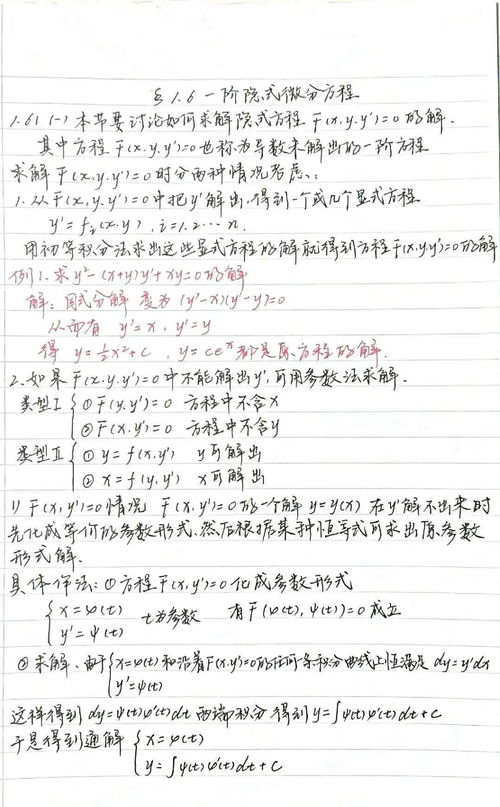 §1.6 一阶隐式微分方程
1.61 (一) 本节要讨论如何求解隐式方程 F(x.y.y')=0 的解.
其中方程 F(x.y.y')=0 也称为导数未解出的一阶方程
求解 F(x,y.y')=0 时分两种情况考虑:
1. 从 F(x,y,y')=0 中把 y' 解出,得到一个或几个显式方程
y'=fᵢ(x.y) , i=1.2…n.
用初等积分法求出这些显式方程的解就得到方程 F(x,y.y')=0 的解
例1. 求 y'²-(x+y)y'+xy=0 的解
解: 因式分解 变为 (y'-x)(y'-y)=0
从而有 y'=x , y'=y
得 y=½x²+c , y=ceˣ 都是原方程的解.
2. 如果 F(x.y.y')=0 中不能解出 y', 可用参数法求解.
类型Ⅰ { ① F(y.y')=0 方程中不含x
② F(x.y')=0 方程中不含y
类型Ⅱ { ① y=f(x,y') y可解出
② x=f(y,y') x可解出
1) F(x,y')=0 情况 F(x,y')=0 的一个解 y=y(x) 在 y' 解不出来时
先化成等价的参数形式.然后根据某种恒等式可求出原参数
形式解.
具体作法: ① 方程 F(x,y')=0 化成参数形式
{ x=φ(t) t为参数 有 F(φ(t),ψ(t))=0 成立
y'=ψ(t)
② 求解. 由于 { x=φ(t) 和沿着 F(x.y')=0 的任何一条积分曲线上恒满足 dy=y'dx
y'=ψ(t)
这样得到 dy=ψ(t)φ'(t)dt 两端积分得到 y=∫ψ(t)φ'(t)dt+c
于是得到通解 { x=φ(t)
y=∫ψ(t)φ'(t)dt+c